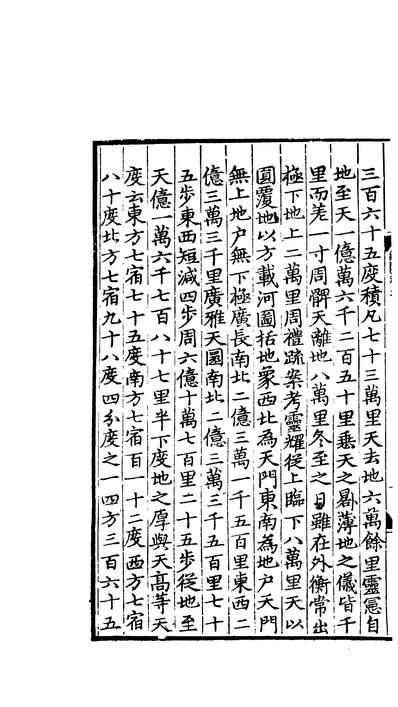 三百六十五度積凡七十三萬里天去地六萬餘里靈憲自
地至天一億萬六千二百五十里垂天之晷薄地之儀皆千
里而差一寸周髀天離地八萬里冬至之日雖在外衡常出
極下地上二萬里周禮疏案考靈耀從上臨下八萬里天以
圓覆地以方載河圖括地象西北為天門東南為地户天門
無上地户無下極廣長南北二億三萬一千五百里東西二
億三萬三千里廣雅天圓南北二億三萬三千五百里七十
五步東西短減四步周六億十萬七百里二十五步從地至
天億一萬六千七百八十七里半下度地之厚與天髙等天
度云東方七宿七十五度南方七宿百一十二度西方七宿
八十度北方七宿九十八度四分度之一四方三百六十五